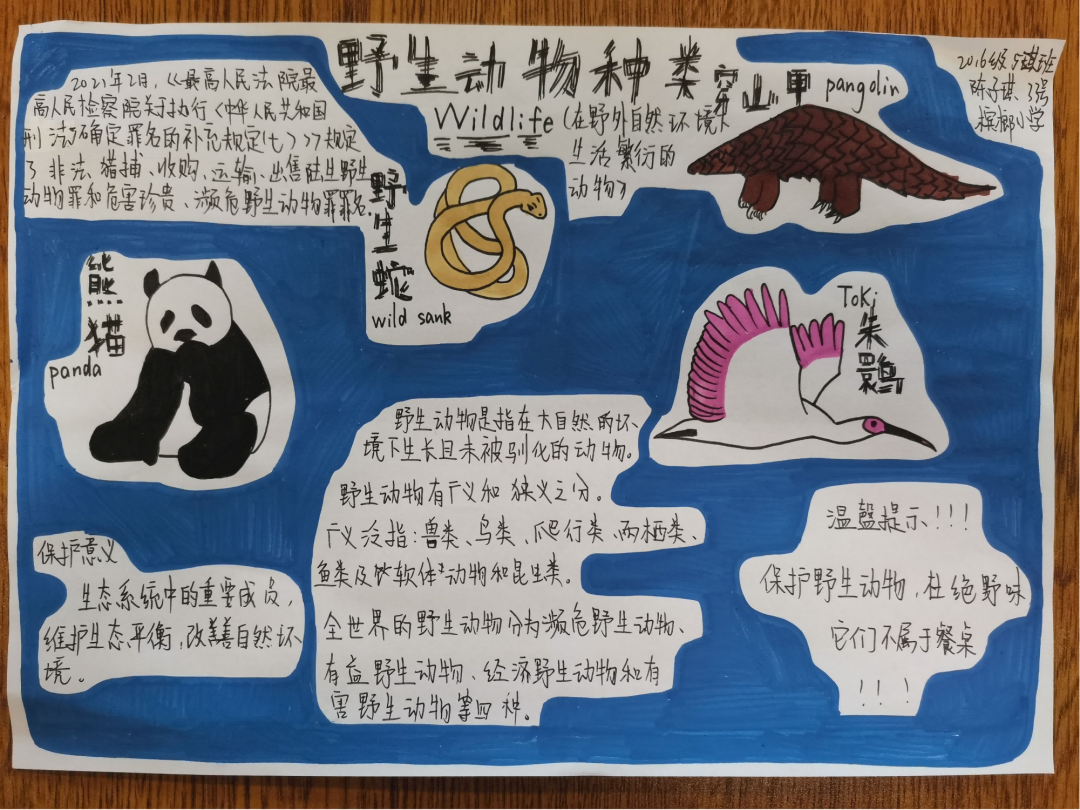 野生动物种类
Wildlife
(在野外自然环境下
生活繁衍的
动物)
2021年2月,《最高人民法院最
高人民检察院关于执行〈中华人民共和国
刑法〉确定罪名的补充规定(七)》规定
了非法猎捕、收购、运输、出售陆生野生
动物罪和危害珍贵、濒危野生动物罪罪名
野生蛇
wild sank
穿山甲 pangolin
2016级
班
3号
槟榔小学
熊猫
panda
Toki
朱鹮
野生动物是指在大自然的环
境下生长且未被驯化的动物。
野生动物有广义和狭义之分。
广义泛指:兽类、鸟类、爬行类、两栖类、
鱼类及软体动物和昆虫类。
全世界的野生动物分为濒危野生动物、
有益野生动物、经济野生动物和有
害野生动物等四种。
保护意义
生态系统中的重要成员,
维护生态平衡,改善自然环
境。
温馨提示!!!
保护野生动物,杜绝野味
它们不属于餐桌
!!!